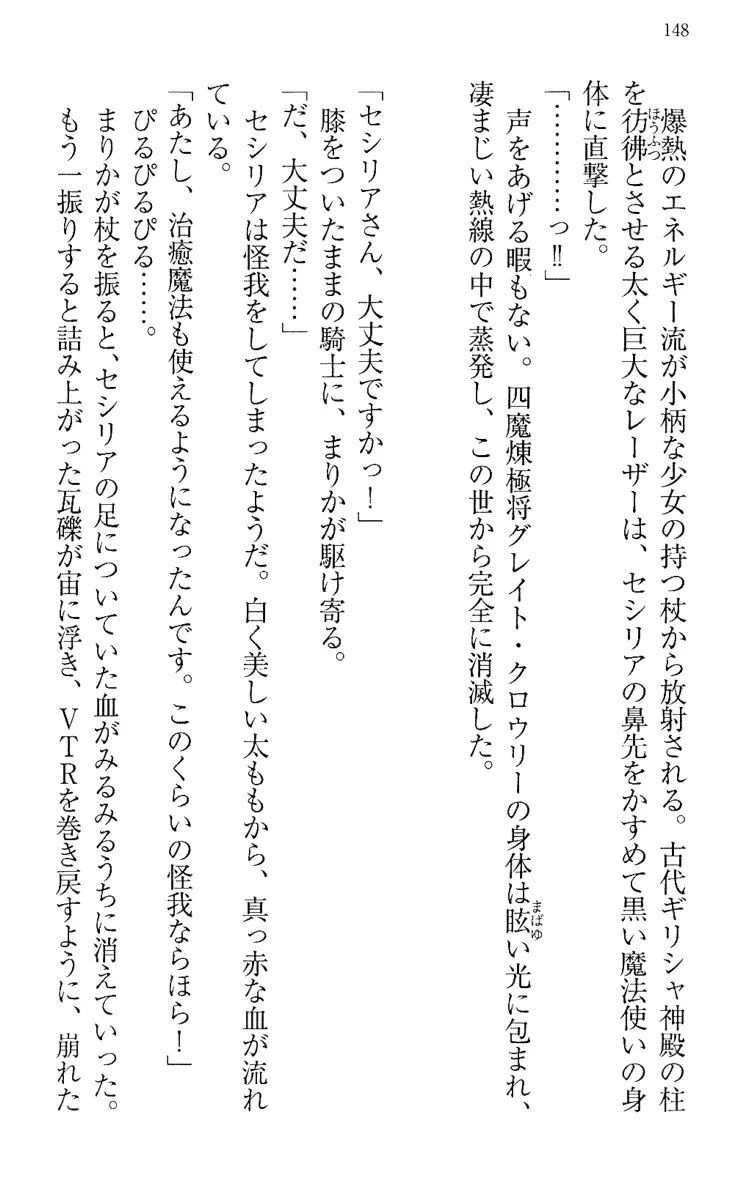 148
爆熱のエネルギー流が小柄な少女の持つ杖から放射される。古代ギリシャ神殿の柱
を彷彿とさせる太く巨大なレーザーは、セシリアの鼻先をかすめて黒い魔法使いの身
ほうふつ
体に直撃した。
「…………っ‼」
声をあげる暇もない。四魔煉極将グレイト・クロウリーの身体は眩い光に包まれ、
まばゆ
凄まじい熱線の中で蒸発し、この世から完全に消滅した。
「セシリアさん、大丈夫ですかっ！」
膝をついたままの騎士に、まりかが駆け寄る。
「だ、大丈夫だ……」
セシリアは怪我をしてしまったようだ。白く美しい太ももから、真っ赤な血が流れ
ている。
「あたし、治癒魔法も使えるようになったんです。このくらいの怪我ならほら！」
ぴるぴるぴる……。
まりかが杖を振ると、セシリアの足についていた血がみるみるうちに消えていった。
もう一振りすると詰み上がった瓦礫が宙に浮き、ＶＴＲを巻き戻すように、崩れた